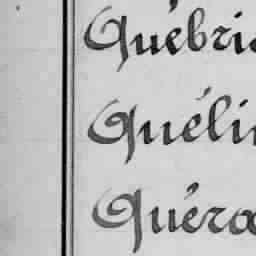 Québri
Quéli
Quéra